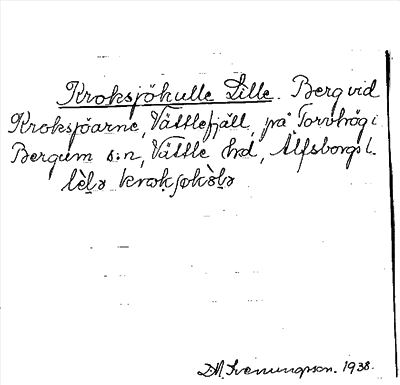 Kroksjökulle Lille. Berg vid
Kroksjöarne, Vättlefjäll, på Torvhög i
Bergum s:n, Vättle hrd, Älfsborgs l.
lìlə krokʃøkòlə
D.M. Svenungsson. 1938.